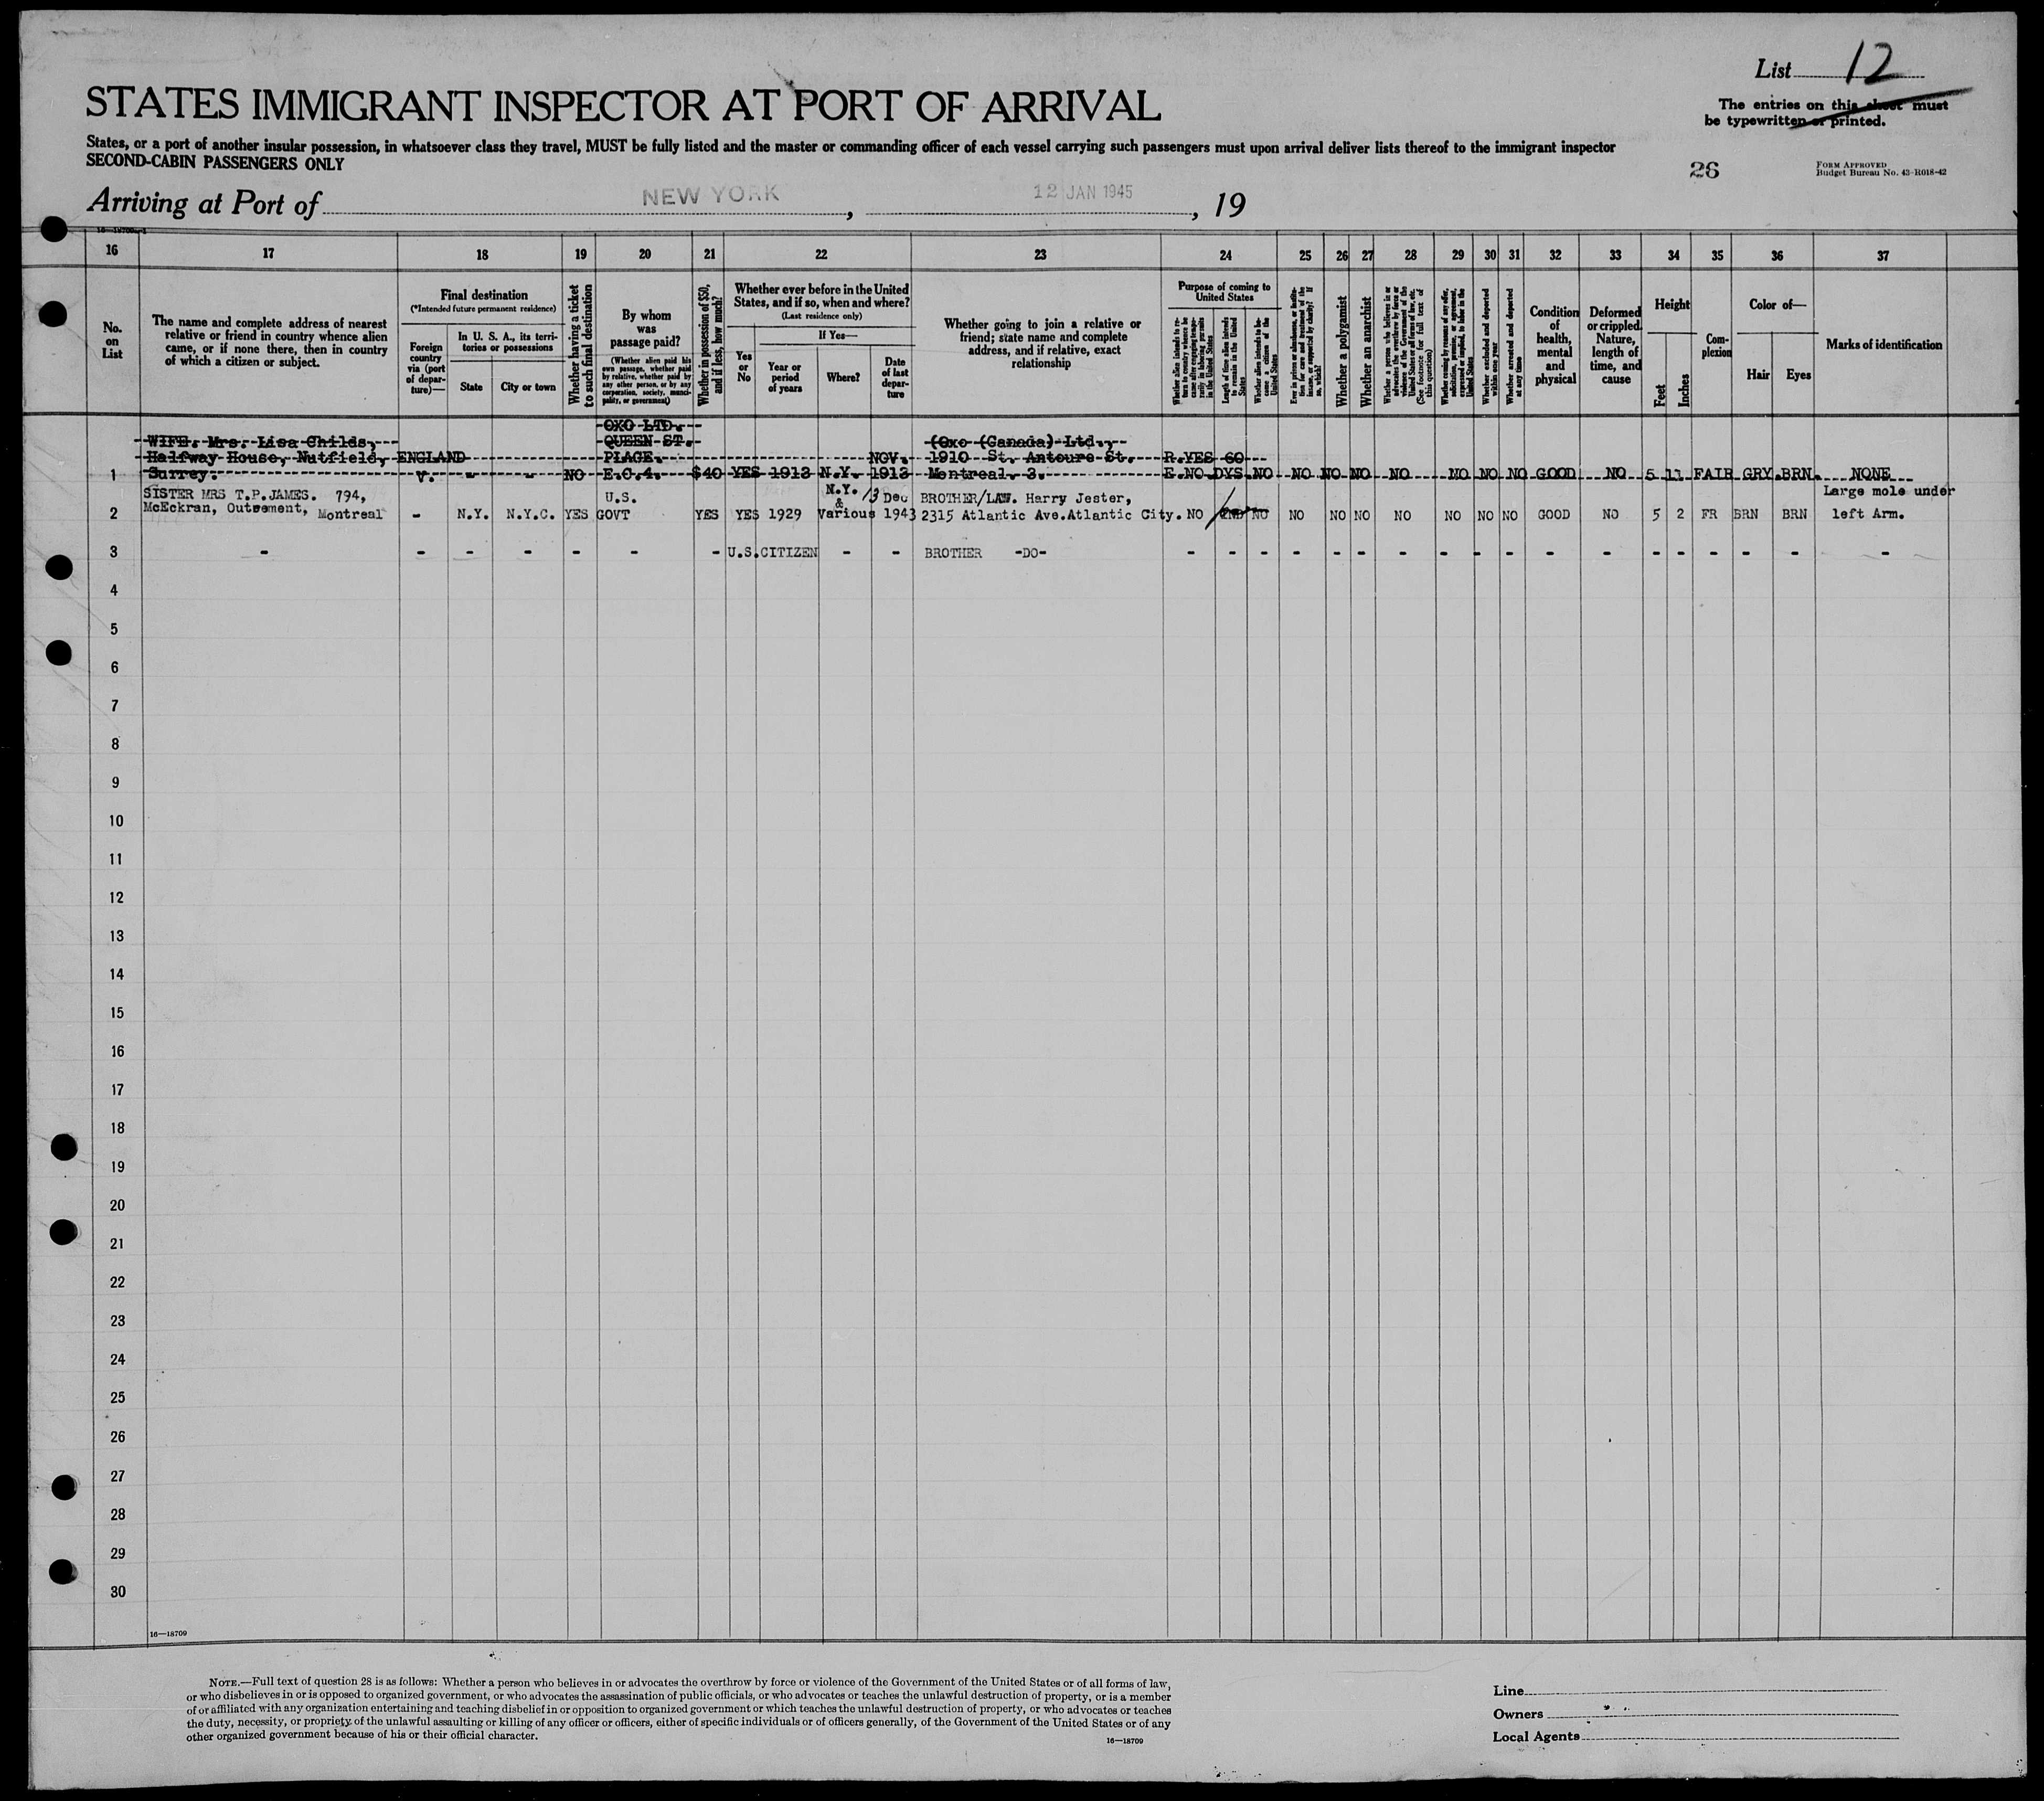 List 12
STATES IMMIGRANT INSPECTOR AT PORT OF ARRIVAL
The entries on this sheet must
be typewritten or printed.
States, or a port of another insular possession, in whatsoever class they travel, MUST be fully listed and the master or commanding officer of each vessel carrying such passengers must upon arrival deliver lists thereof to the immigrant inspector
SECOND-CABIN PASSENGERS ONLY
26
FORM APPROVED
Budget Bureau No. 43-R018-42
Arriving at Port of NEW YORK, 12 JAN 1945, 19
16 17 18 19 20 21 22 23 24 25 26 27 28 29 30 31 32 33 34 35 36 37
No. on List
The name and complete address of nearest relative or friend in country whence alien came, or if none there, then in country of which a citizen or subject.
Final destination
(*Intended future permanent residence)
Foreign country via (port of departure)—
In U. S. A., its territories or possessions
State
City or town
Whether having a ticket to such final destination
By whom was passage paid?
(Whether alien paid his own passage, whether paid by relative, whether paid by any other person, or by any corporation, society, municipality, or government)
Whether in possession of $50, and if less, how much?
Whether ever before in the United States, and if so, when and where?
(Last residence only)
Yes or No
If Yes—
Year or period of years
Where?
Date of last departure
Whether going to join a relative or friend; state name and complete address, and if relative, exact relationship
Purpose of coming to United States
Whether alien intends to return to country whence he came after engaging temporarily in laboring pursuits in the United States
Length of time alien intends to remain in the United States
Whether alien intends to become a citizen of the United States
Whether a polygamist
Whether an anarchist
Whether a person who believes in or advocates the overthrow by force or violence of the Government of the United States or all forms of law, etc. (See footnote for full text of this question)
Whether excluded and deported within one year
Whether arrested and deported at any time
Condition of health, mental and physical
Deformed or crippled. Nature, length of time, and cause
Height
Feet
Inches
Complexion
Color of—
Hair
Eyes
Marks of identification
OXO LTD.
WIFE. Mrs. Lisa Childs, QUEEN ST. (Oxo (Canada) Ltd.,
Halfway House, Nutfield, ENGLAND PLACE. NOV. 1910 St. Antoure St. R.YES 60
1 Surrey. V. - - NO E.C.4. $40 YES 1913 N.Y. 1913 Montreal. 3. E.NO DYS NO NO NO NO NO NO NO NO GOOD NO 5 11 FAIR GRY BRN. NONE
SISTER MRS T.P.JAMES. 794, U.S. N.Y. 13 Dec BROTHER/LAW. Harry Jester, Large mole under
McEckran, Outrement, Montreal
2 - N.Y. N.Y.C. YES GOVT YES YES 1929 & Various 1943 2315 Atlantic Ave.Atlantic City. NO NO NO NO NO NO NO NO NO GOOD NO 5 2 FR BRN BRN left Arm.
3 - - - - - - - U.S.CITIZEN - - BROTHER -DO- - - - - - - - - - - - - - - - - - -
4
5
6
7
8
9
10
11
12
13
14
15
16
17
18
19
20
21
22
23
24
25
26
27
28
29
30
16—18709
NOTE.—Full text of question 28 is as follows: Whether a person who believes in or advocates the overthrow by force or violence of the Government of the United States or of all forms of law,
or who disbelieves in or is opposed to organized government, or who advocates the assassination of public officials, or who advocates or teaches the unlawful destruction of property, or is a member
of or affiliated with any organization entertaining and teaching disbelief in or opposition to organized government or which teaches the unlawful destruction of property, or who advocates or teaches
the duty, necessity, or propriety of the unlawful assaulting or killing of any officer or officers, either of specific individuals or of officers generally, of the Government of the United States or of any
other organized government because of his or their official character.
16—18709
Line
Owners
Local Agents